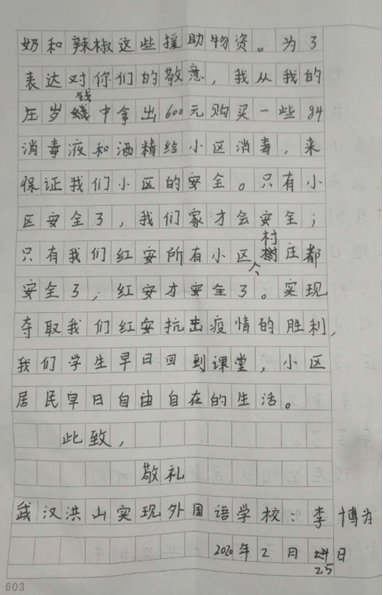 奶和辣椒这些援助物资。为了
表达对你们的敬意，我从我的
压岁钱中拿出600元购买一些84
消毒液和酒精给小区消毒，来
保证我们小区的安全。只有小
区安全了，我们家才会安全；
只有我们红安所有小区个村庄都
安全了，红安才安全了。实现
夺取我们红安抗击疫情的胜利，
我们学生早日回到课堂，小区
居民早日自由自在的生活。
此致，
敬礼
武汉洪山实现外国语学校：李博为
2020年2月25日
603